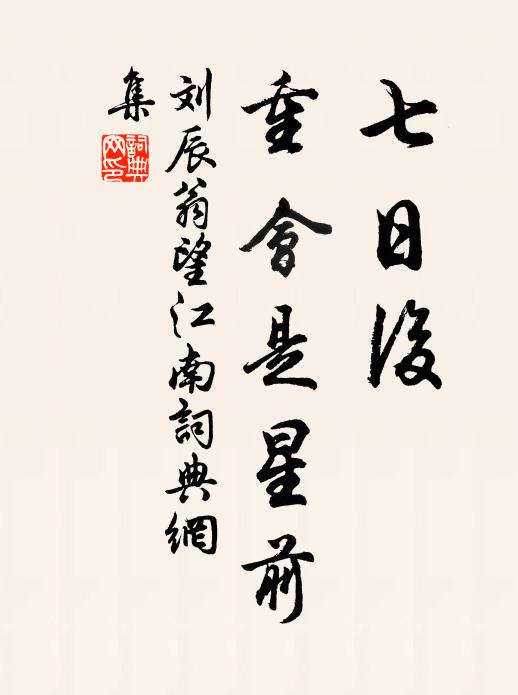 七日後
重會是星前
刘辰翁望江南詞典網
集
詞典
网印